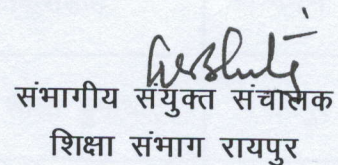 संभागीय संयुक्त संचालक
शिक्षा संभाग रायपुर